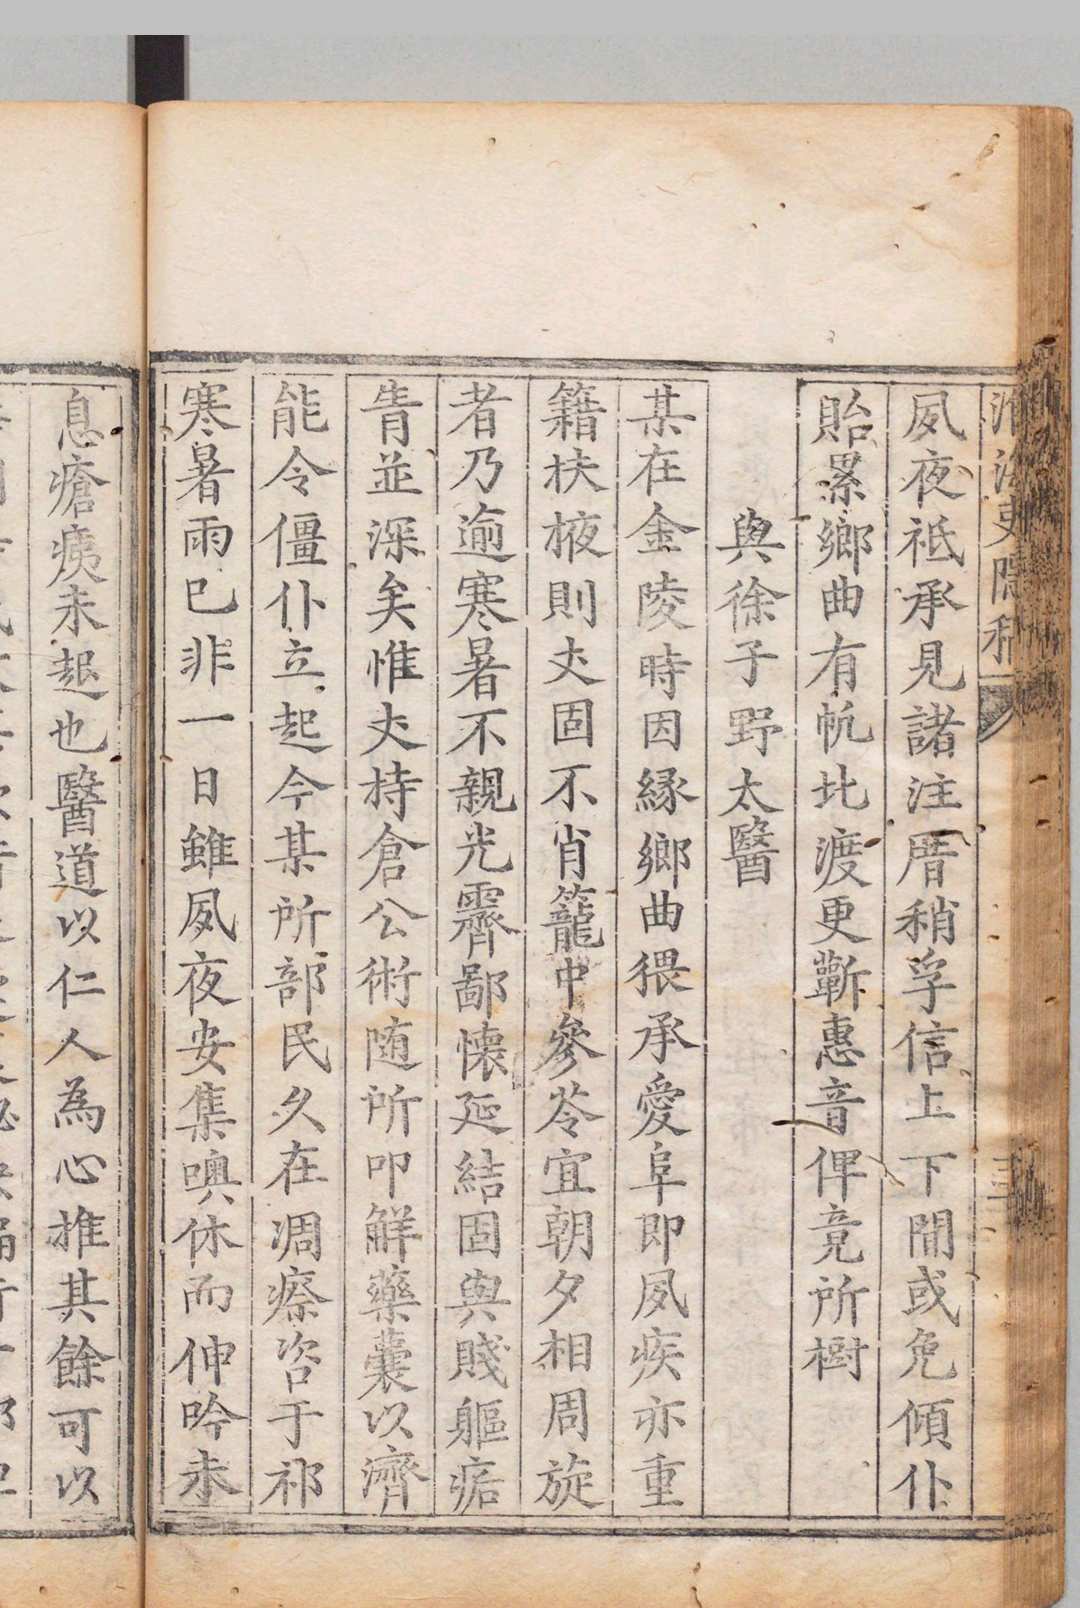 夙夜祗承見諸注厝稍孚信上下間或免傾仆
貽累鄉曲有㠵比渡更蘄惠音俾竟所樹
與徐子野太醫
某在金陵時因緣鄉曲猥承愛阜即夙疾亦重
籍扶掖則夫固不肖籠中參苓宜朝夕相周旋
者乃逾寒暑不親光霽鄙懷延結固與賤軀痁
眚並深矣惟夫持倉公術随所叩觧藥囊以濟
能令僵仆立起今某所部民久在凋瘵咨于祁
寒暑雨巳非一日雖夙夜安集噢休而伸吟未
息瘡痍未起也醫道以仁人為心推其餘可以